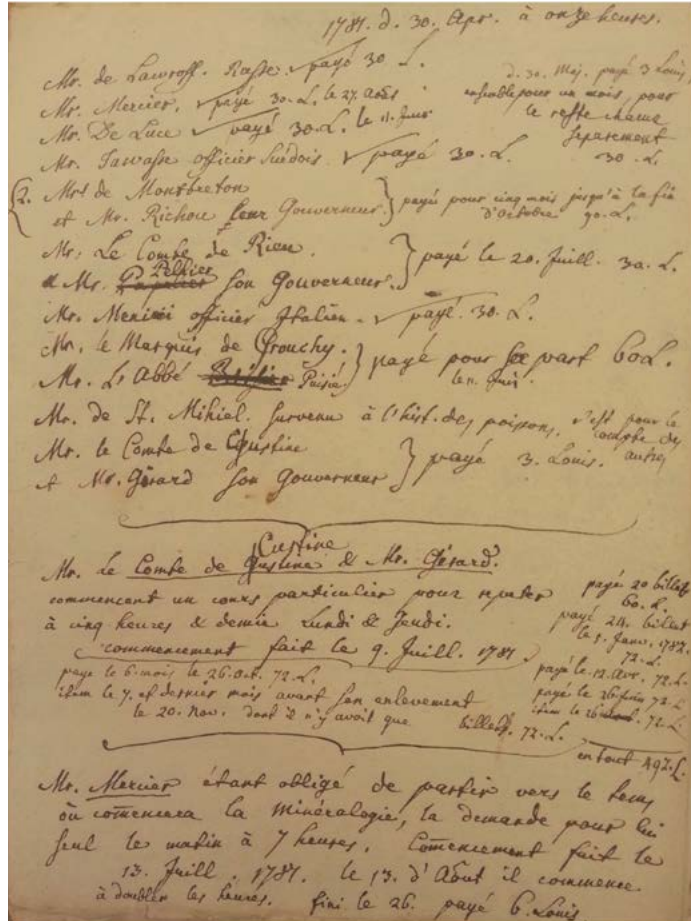 1781. d. 30. Apr. à onze heures.
Mr. de Lawroff. Russe. payé 30 L.
Mr. Mercier. payé 30. L. le 27. Août
Mr. De Luce payé 30. L. le 11. Juin
d. 30. Maj. payé 3 Louis
ensemble pour un mois, pour
le reste chacun
separement
30. L.
Mr. officier Suédois. payé 30. L.
2. Mrs de Montbreton
et Mr. Richou leur Gouverneur.
payés pour cinq mois jusqu'à la fin
d'Octobre 90. L.
Mr. Le Comte de Rieu.
& Mr. Peltier son Gouverneur.
payé le 20. Juill. 30. L.
Mr. officier Italien. payé. 30. L.
Mr. le Marquis de Grouchy.
Mr. L'Abbé
payé pour sa part 60 L.
le 11. Juin.
Mr. de St. Mihiel. survenu à l'hist. des poisons. c'est pour le
compte des
autres
Mr. le Comte de Custine
et Mr. Gérard son Gouverneur
payé 3. Louis.
Custine
Mr. Le Comte de Custine & Mr. Gérard.
commencent un cours particulier pour repeter
à cinq heures & demie Lundi & Jeudi.
commencement fait le 9. Juill. 1781
paye le 6. mois le 26. Oct. 72. L.
item le 7. et dernier mois avant son enlevement
le 20. Nov. dont il n'y avoit que billets. 72. L.
payé 20 billets
60. L.
payé 24. billets
le 5. Janv. 1782.
72. L.
payé le 12. Avr. 72. L.
payé le 26 Juin 72. L.
item le 26 72. L.
en tout 492. L.
Mr. Mercier étant obligé de partir vers le tems
où comencera la Minéralogie, la demande pour lui
seul le matin à 7 heures. Comencement fait le
13. Juill. 1781. le 13. d'Août il commence
à doubler les heures. fini le 26. payé 6. Louis